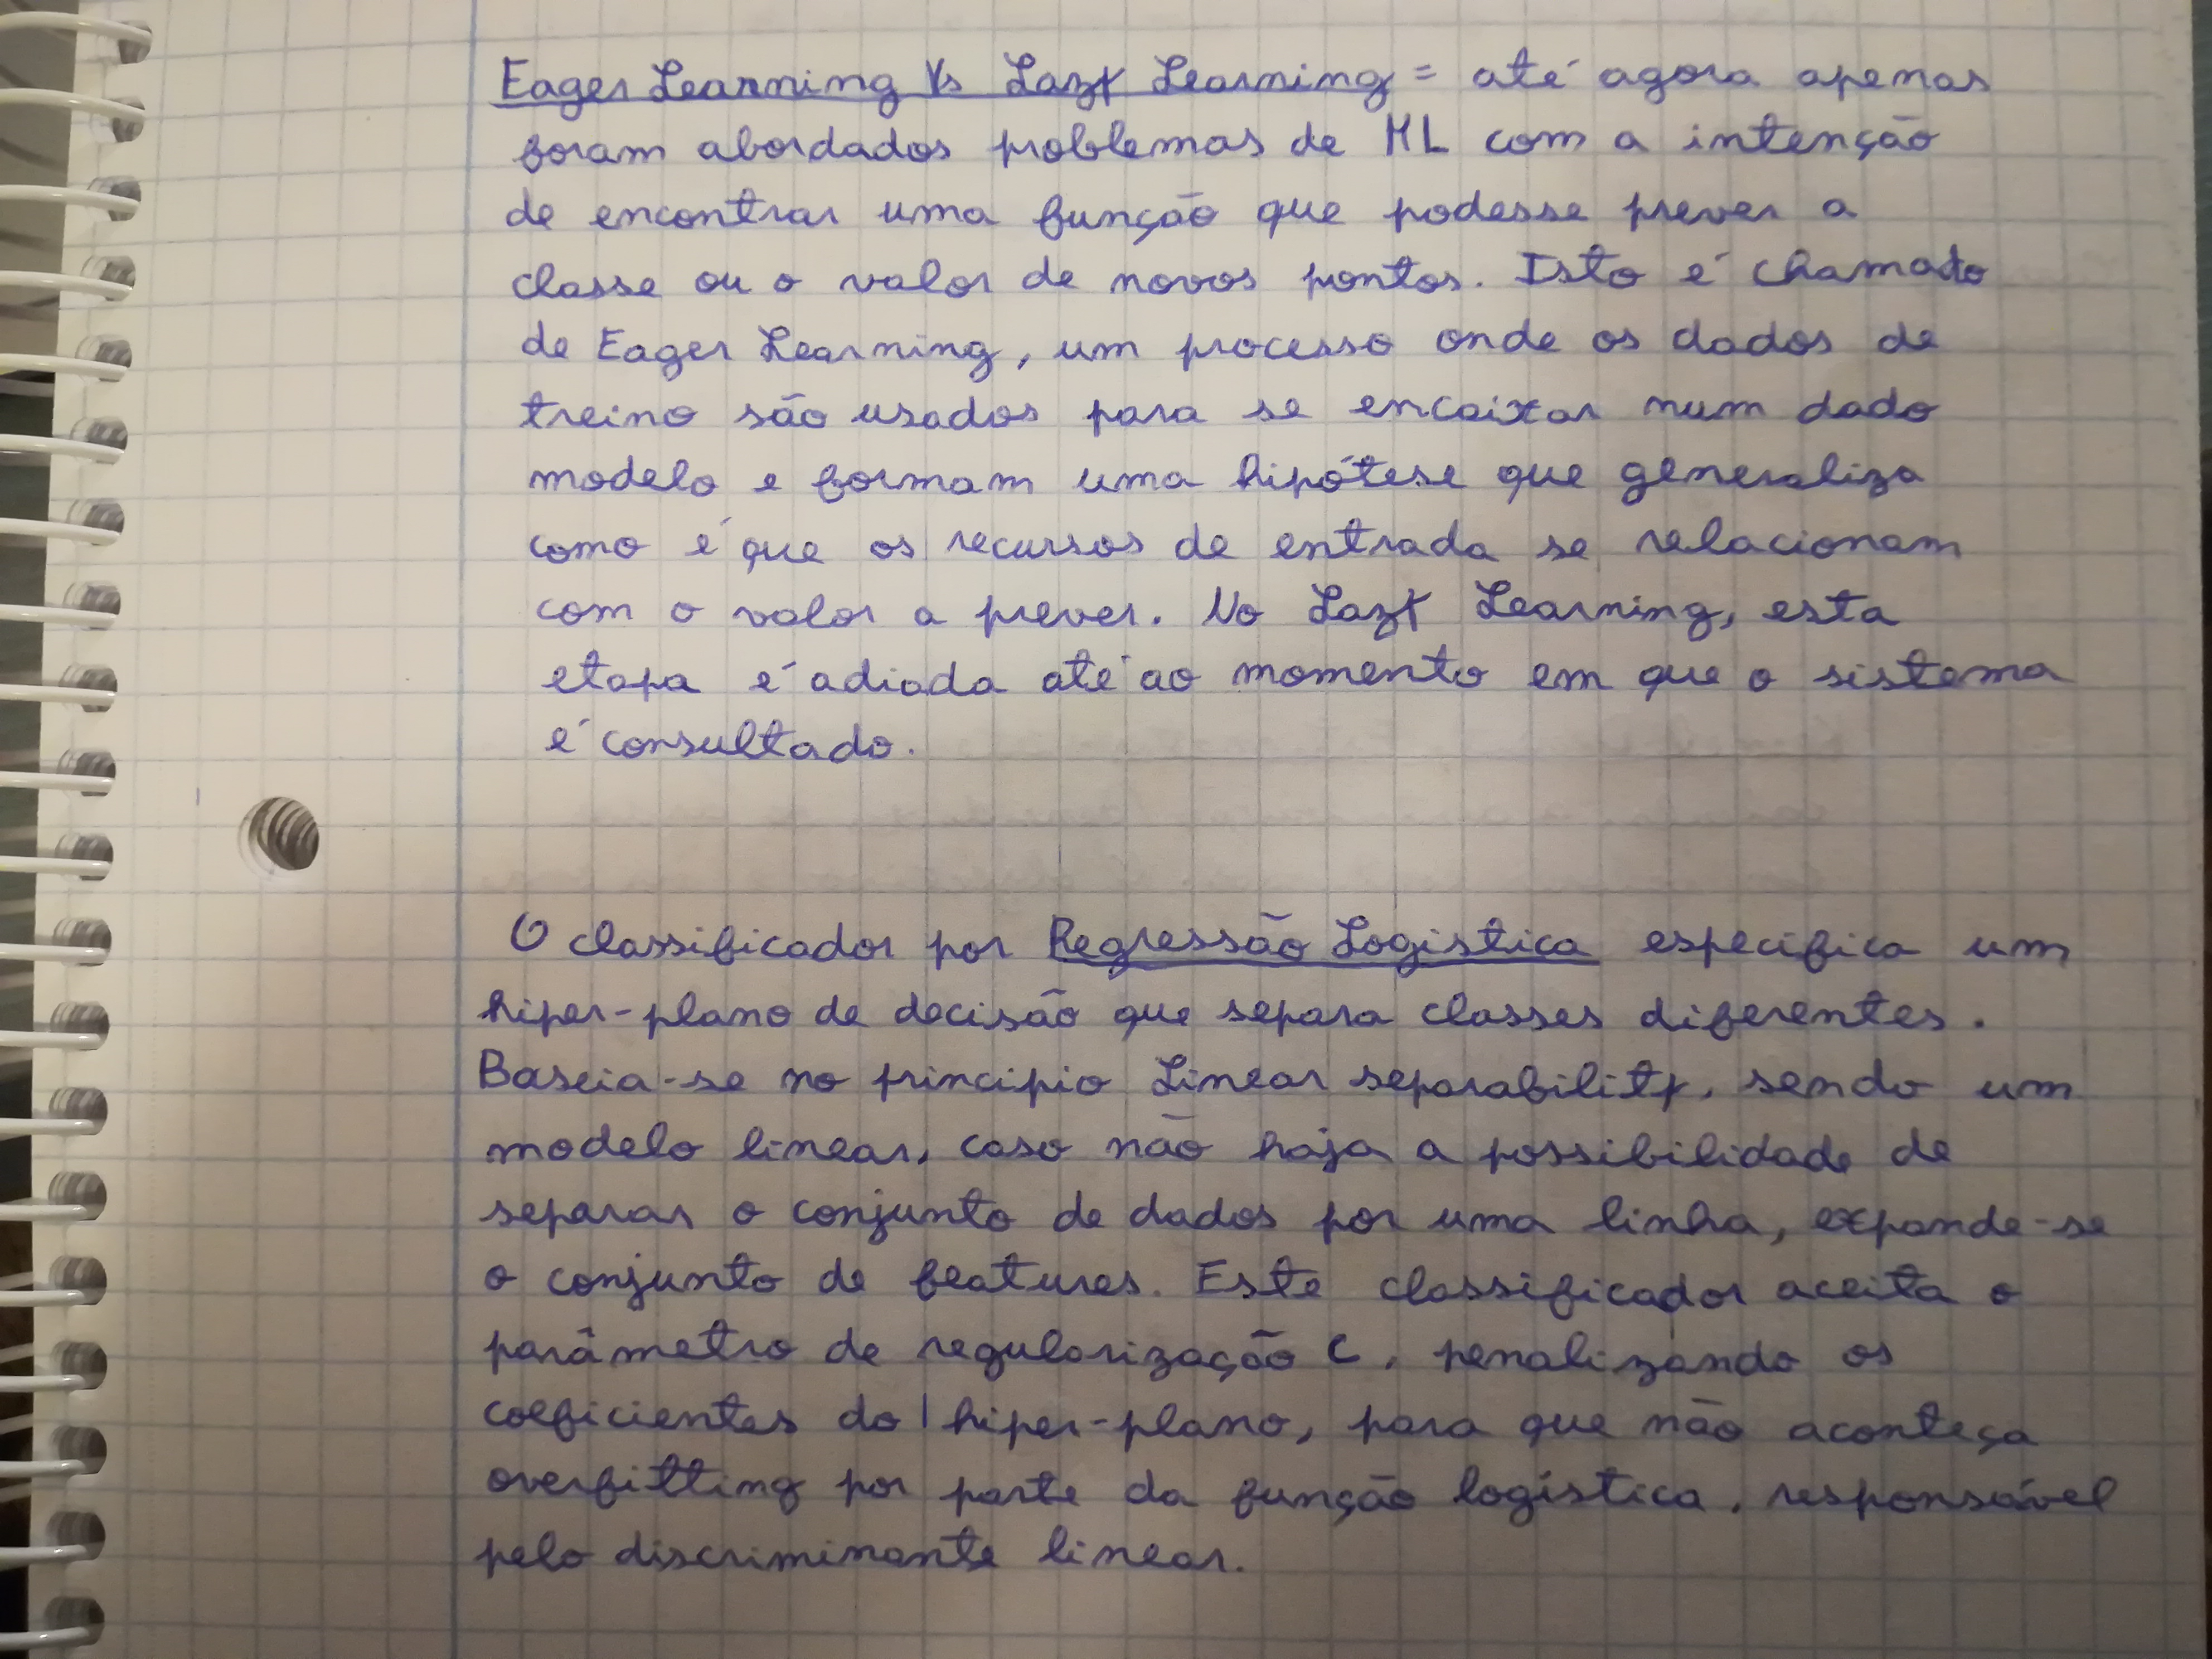 Eager Learning Vs Lazy Learning = até agora apenas
foram abordados problemas de ML com a intenção
de encontrar uma função que podesse prever a
classe ou o valor de novos pontos. Isto é chamado
de Eager Learning, um processo onde os dados de
treino são usados para se encaixar num dado
modelo e formam uma hipótese que generaliza
como é que os recursos de entrada se relacionam
com o valor a prever. No Lazy Learning, esta
etapa é adiada até ao momento em que o sistema
é consultado.
O classificador por Regressão Logistica especifica um
hiper-plano de decisão que separa classes diferentes.
Baseia-se no principio Linear separability, sendo um
modelo linear, caso não haja a possibilidade de
separar o conjunto de dados por uma linha, expande-se
o conjunto de features. Este classificador aceita o
parâmetro de regularização C, penalizando os
coeficientes do hiper-plano, para que não aconteça
overfitting por parte da função logística, responsável
pelo discriminante linear.